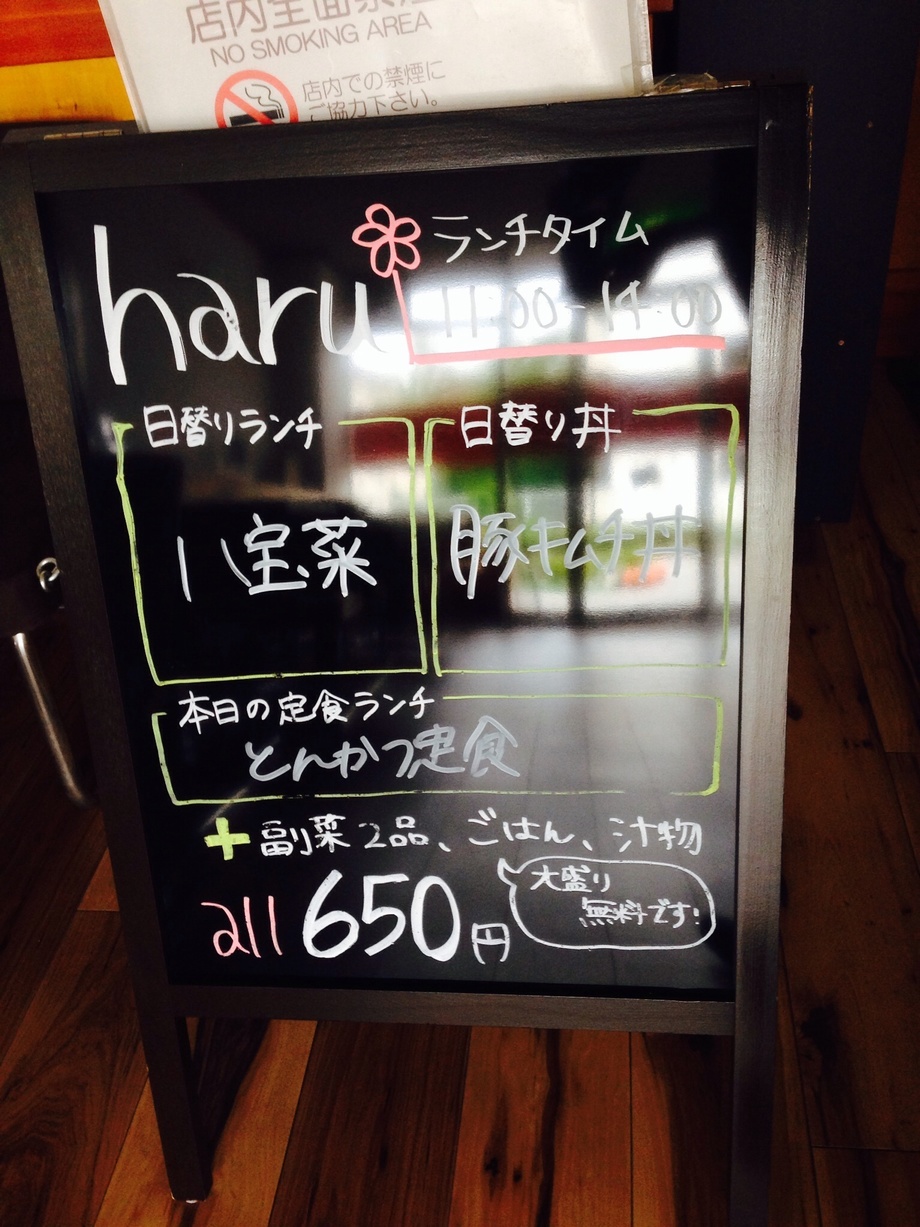 店内全面禁煙
NO SMOKING AREA
店内での禁煙に
ご協力下さい。
haru
ランチタイム
11:00-14:00
日替りランチ
八宝菜
日替り丼
豚キムチ丼
本日の定食ランチ
とんかつ定食
+副菜2品、ごはん、汁物
all 650円
大盛り
無料です!